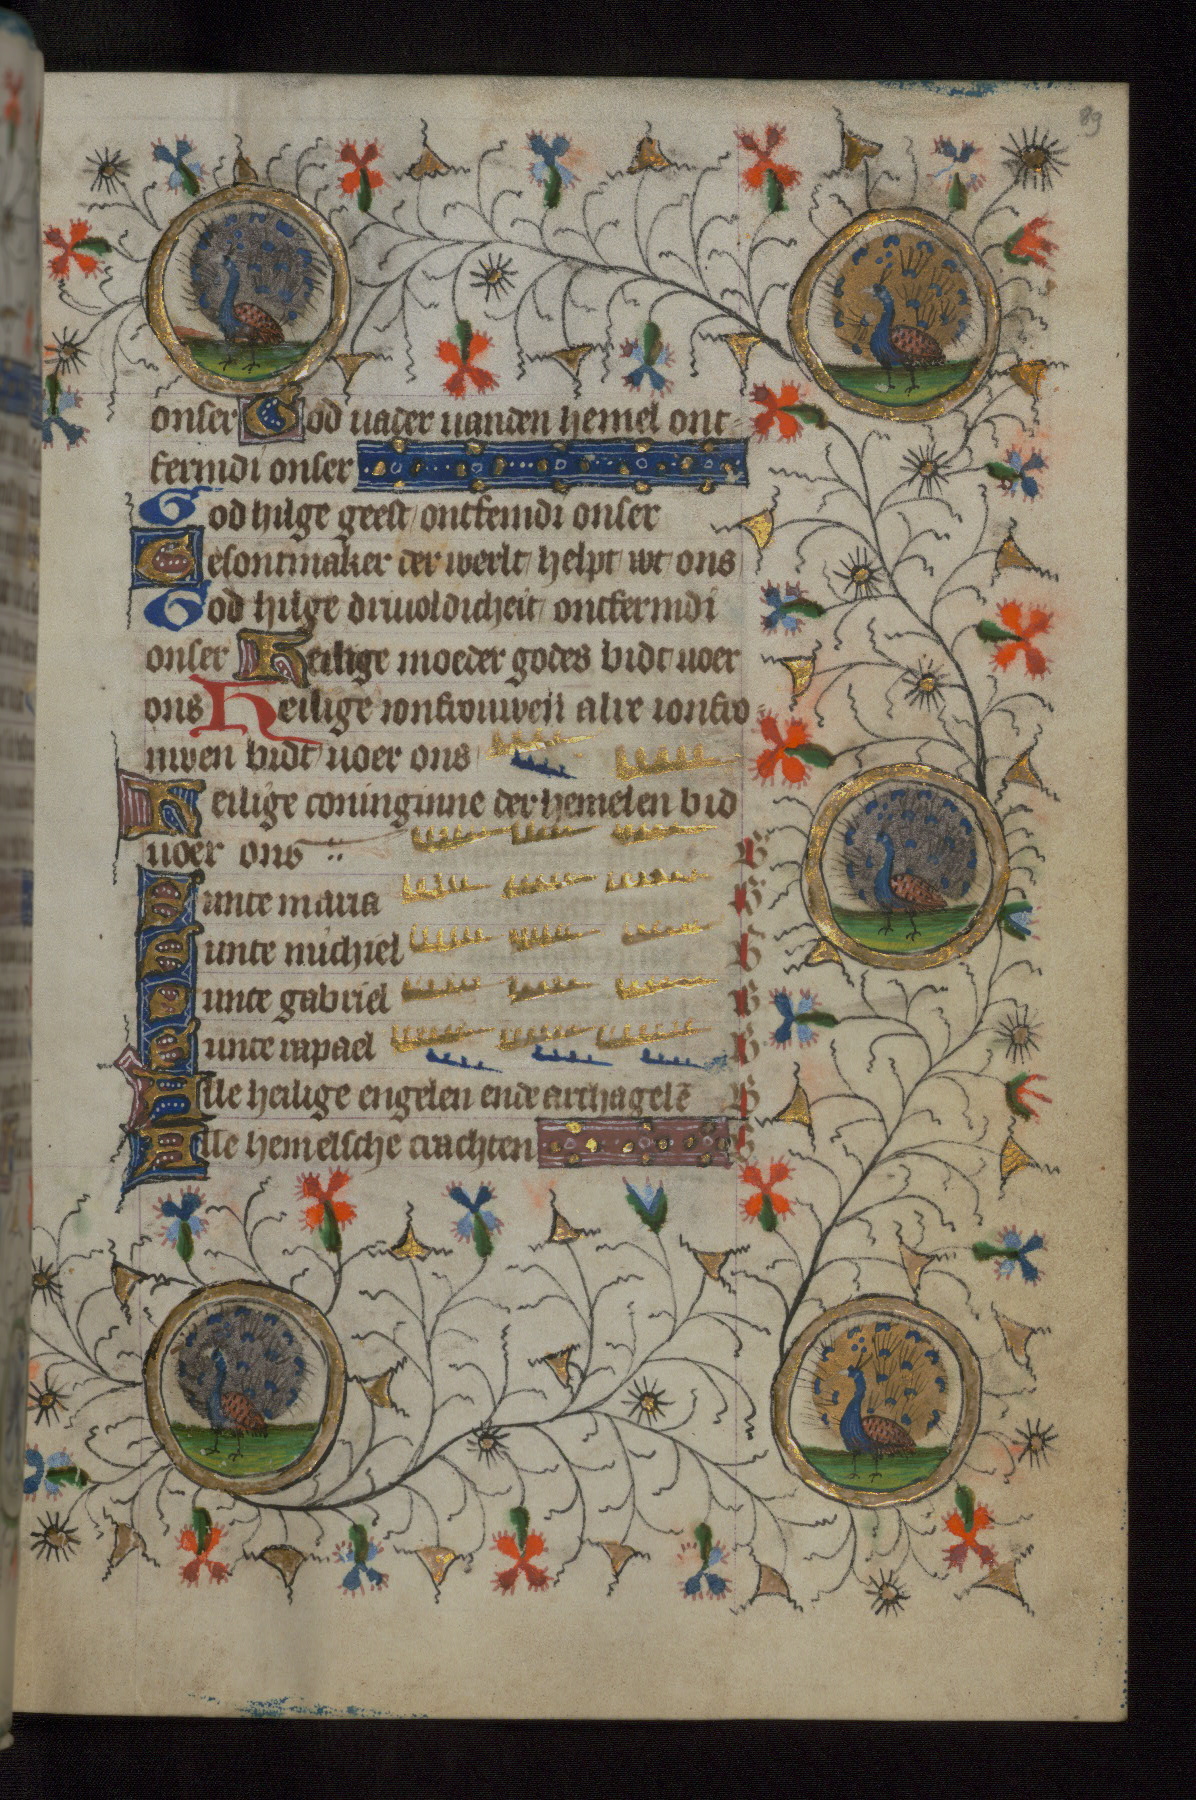 89
onser God uader uanden hemel ont
fermdi onser
God hilge geest ontfermdi onser
Gesontmaker der werlt helpt wt ons
God hilge driuoldicheit ontfermdi
onser Heilige moeder godes bidt uoer
ons Heilige ionfrouwen alre ionfro
uwen bidt uoer ons
Heilige coninginne der hemelen bid
uoer ons
Sunte maria B
Sunte michiel B
Sunte gabriel B
Sunte rapael B
Alle heilige engelen ende archagelē B
Alle hemelsche crachten B